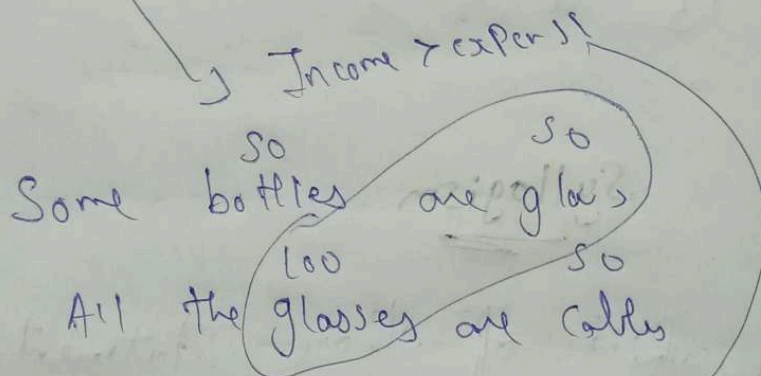 Income > expense
50 50
Some bottles are glass
100 50
All the glasses are cables